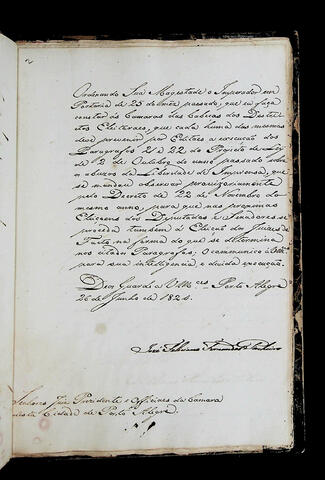 2
Ordenando Sua Magestade o Imperador em
Portaria de 25 do mez passado, que eu faça
constar ás Camaras das Cabeças dos Destri-
ctos Eleitoraes, que cada huma das mesmas
deve prevenir por Editaes a execução dos
Paragrafos 21 e 22 do Projecto de Ley
de 2 de Outubro do anno passado sobre
o abuzo de Liberdade de Imprensa, que
se mandou observar provizoriamente
pelo Decreto de 22 de Novembro do
mesmo anno, para que nas proximas
Eleiçoens dos Deputados e Senadores se
proceda tambem á Eleição dos Juizes de
Facto na forma do que se determina
nos citados Paragrafos. O communico á
para sua intelligencia e divida execução.
Deos Guarde a VMces Porto Alegre
26 de Junho de 1824.
José Feliciano Fernandes Pinheiro
Senhores Juiz Prezidente e Officiaes da Camara
desta Cidade de Porto Alegre